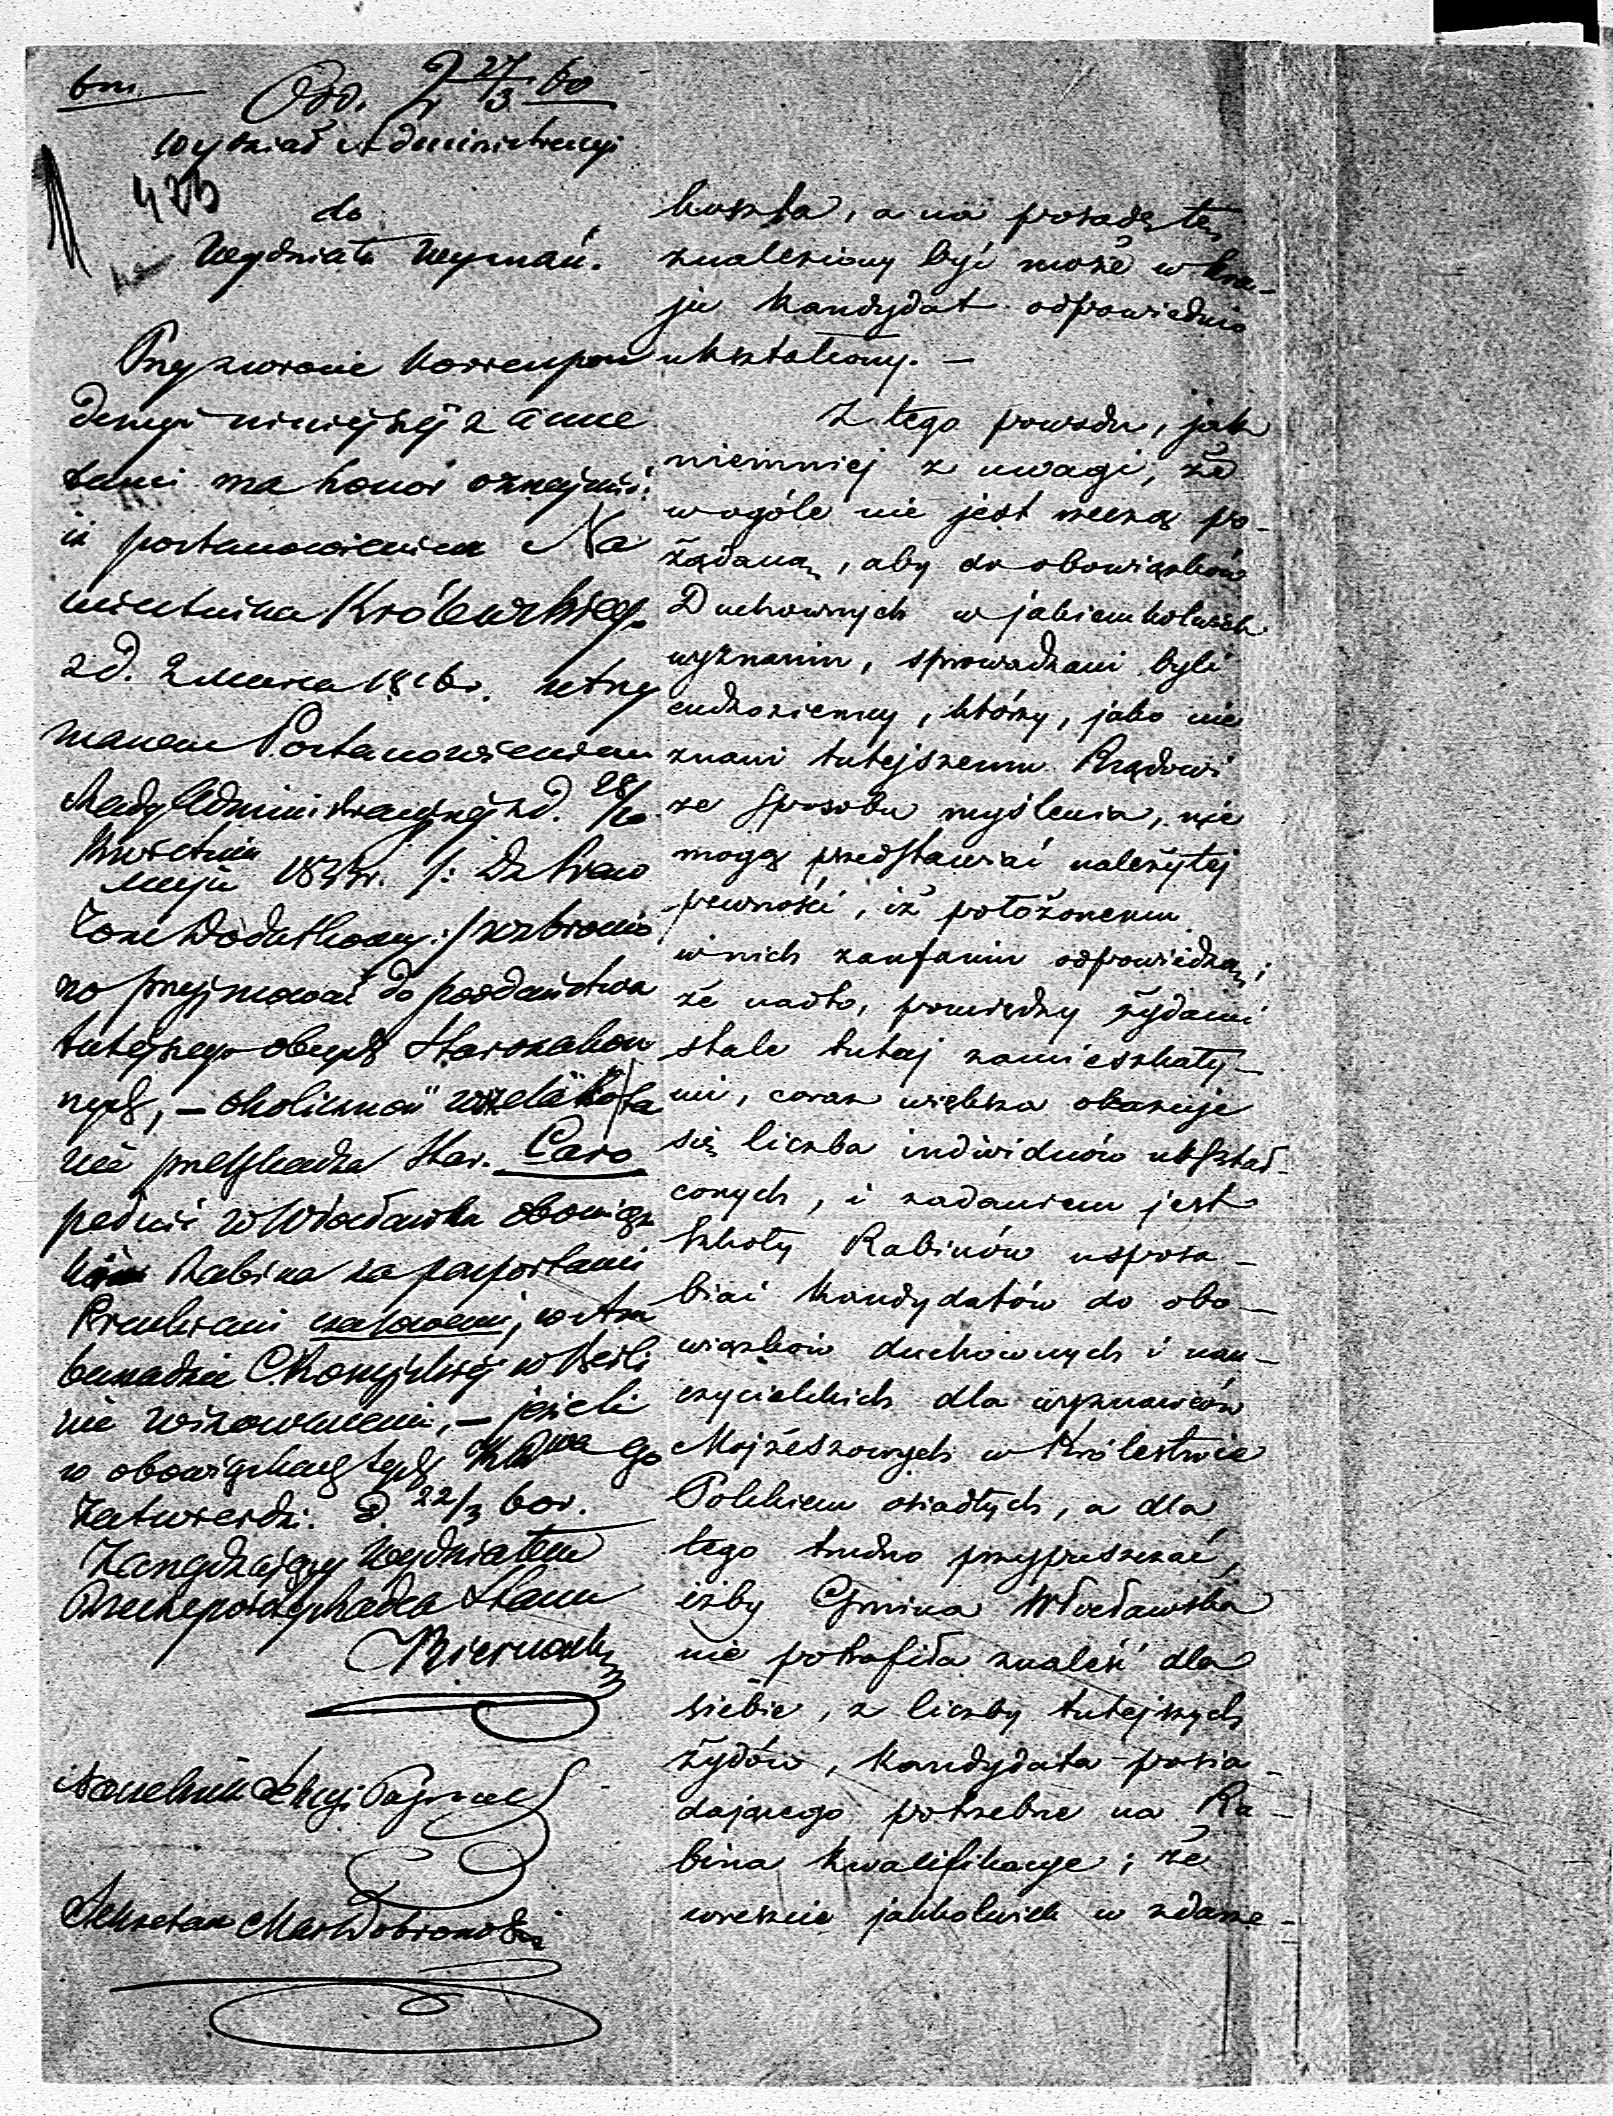 bm.
Odd. 27/3 60
Wydział Administracyi
423
do
Wydziału Wyznań.
Przy zwrocie korrespon
dencyi niniejszej z anne
xami ma honor oznajmić:
iż postanowieniem Na
miestnika Królewskiego
z d. 2 Marca 1816 r. utrzy
manem Postanowieniem
Rady Administracyjnej z d. 28/10
Kwietnia
Maja 184 r. /: Dz. Praw
Tom Dodatkowy :/ wzbronio
no przyjmować do poddaństwa
tutejszego obcych Starozakon
nych, — okoliczność wszelako ta
nie przeszkadza Star. Caro
pełnić w Włocławku obowiąz
ków Rabina za paszportami
Pruskiemi czasowemi, w Am
bassadzie C. Rossyjskiej w Berli
nie wizowanemi, — jeżeli
w obowiązkach tych go
zatwierdzi. d. 22/3 60 r.
Zarządzający Wydziałem
Rzeczywisty Radca Stanu
Biernacki
Naczelnik Sekcyi
Sekretarz Dobronoki
koszta, a na posadę tę,
znaleziony być może w kra-
ju kandydat odpowiednio
ukształcony. —
Z tego powodu, jak
niemniej z uwagi, że
wogóle nie jest rzeczą po-
żądaną, aby do obowiązków
Duchownych w jakiemkolwiek
wyznaniu, sprowadzani byli
cudzoziemcy, którzy, jako nie
znani tutejszemu Rządowi
ze sposobu myślenia, nie
mogą przedstawiać należytej
pewności, iż położonemu
w nich zaufaniu odpowiedzą;
że nadto, pomiędzy żydami
stale tutaj zamieszkały-
mi, coraz większa okazuje
się liczba individuów ukształ-
conych, i zadaniem jest
Szkoły Rabinów usposa-
biać kandydatów do obo-
wiązków duchownych i nau-
czycielskich dla wyznawców
Mojżeszowych w Królestwie
Polskiem osiadłych, a dla
tego trudno przypuszczać,
iżby Gmina Włocławska
nie potrafiła znaleść dla
siebie, z liczby tutejszych
żydów, kandydata posia-
dającego potrzebne na Ra-
bina kwalifikacye; że
wreszcie jakkolwiek w zdarze-